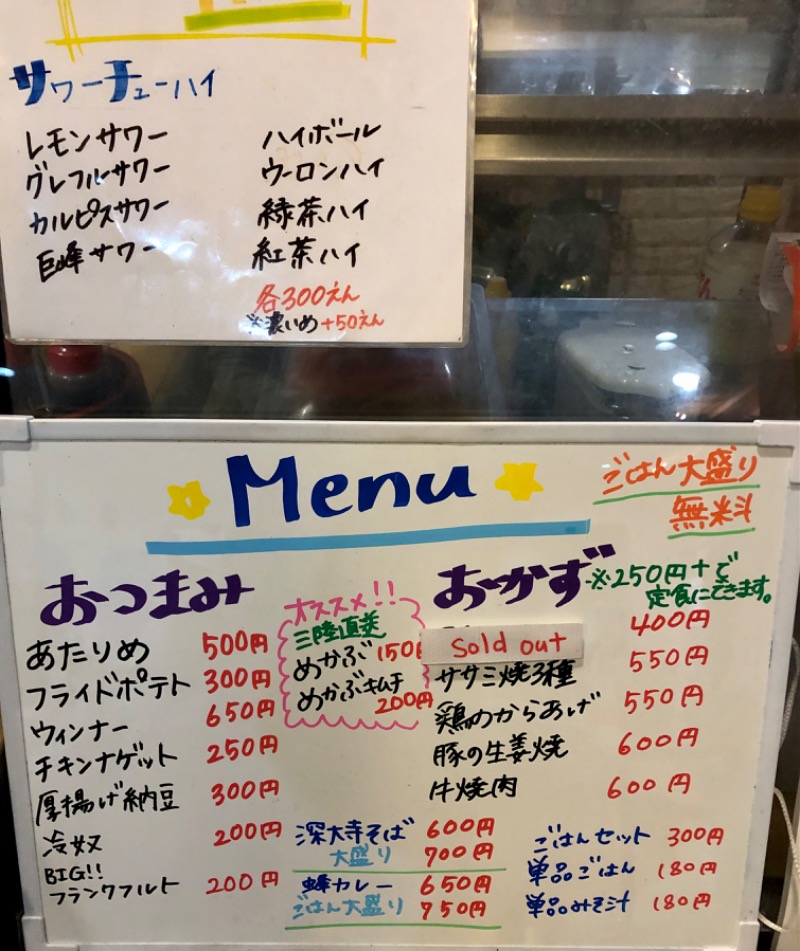 サワーチューハイ
レモンサワー ハイボール
グレフルサワー ウーロンハイ
カルピスサワー 緑茶ハイ
巨峰サワー 紅茶ハイ
各300えん
※濃いめ+50えん
Menu
ごはん大盛り
無料
おつまみ
あたりめ 500円
フライドポテト 300円
ウィンナー 650円
チキンナゲット 250円
厚揚げ納豆 300円
冷奴 200円
BIG!!
フランクフルト 200円
オススメ!!
三陸直送
めかぶ 150円
めかぶキムチ
200円
おかず
※250円+で
定食にできます。
Sold out 400円
ササミ焼3種 550円
鶏のからあげ 550円
豚の生姜焼 600円
牛焼肉 600円
深大寺そば 600円
大盛り 700円
カレー 650円
ごはん大盛り 750円
ごはんセット 300円
単品ごはん 180円
単品みそ汁 180円